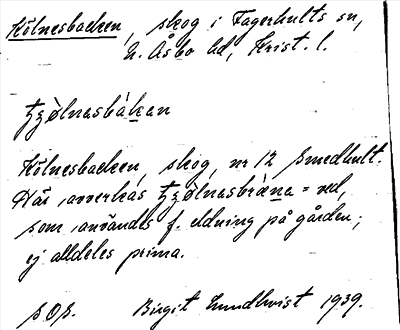 Kölnesbacken, skog i Fagerhults sn,
N. Åsbo hd, Krist. l.
tʒølnasbàkan
Kölnesbacken, skog, nr 12 Smedhult.
Här avverkas tʒølnasbræ̀na = ved,
som användes f. eldning på gården;
ej alldeles prima.
S.O.S. Birgit Lundkvist 1939.